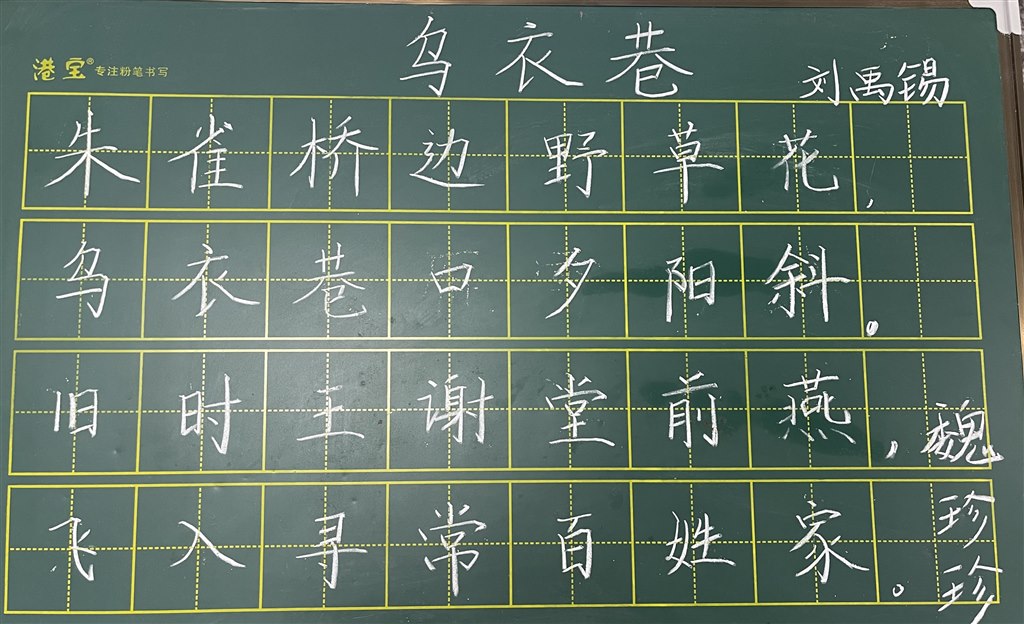 乌衣巷
刘禹锡
港宝® 专注粉笔书写
朱雀桥边野草花,
乌衣巷口夕阳斜。
旧时王谢堂前燕,
飞入寻常百姓家。
魏珍珍